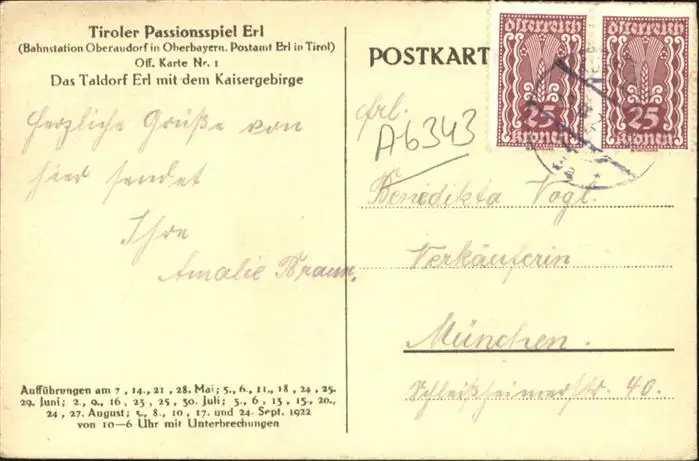 Tiroler Passionsspiel Erl
(Bahnstation Oberaudorf in Oberbayern. Postamt Erl in Tirol)
Off. Karte Nr. 1
Das Taldorf Erl mit dem Kaisergebirge
Herzliche Grüße von
hier sendet
Ihre
Amalie Braun.
Aufführungen am 7., 14., 21., 28. Mai; 5., 6., 11., 18., 24., 25.
29. Juni; 2., 9., 16., 23., 25., 30. Juli; 3., 6., 13., 15., 20.,
24., 27. August; 8., 10., 17. und 24. Sept. 1922
von 10—6 Uhr mit Unterbrechungen
POSTKART
österreich
25
kronen
österreich
25
kronen
Frl.
A6343
Benedikta Vogl.
Verkäuferin
München.
Schleißheimerstr. 40.